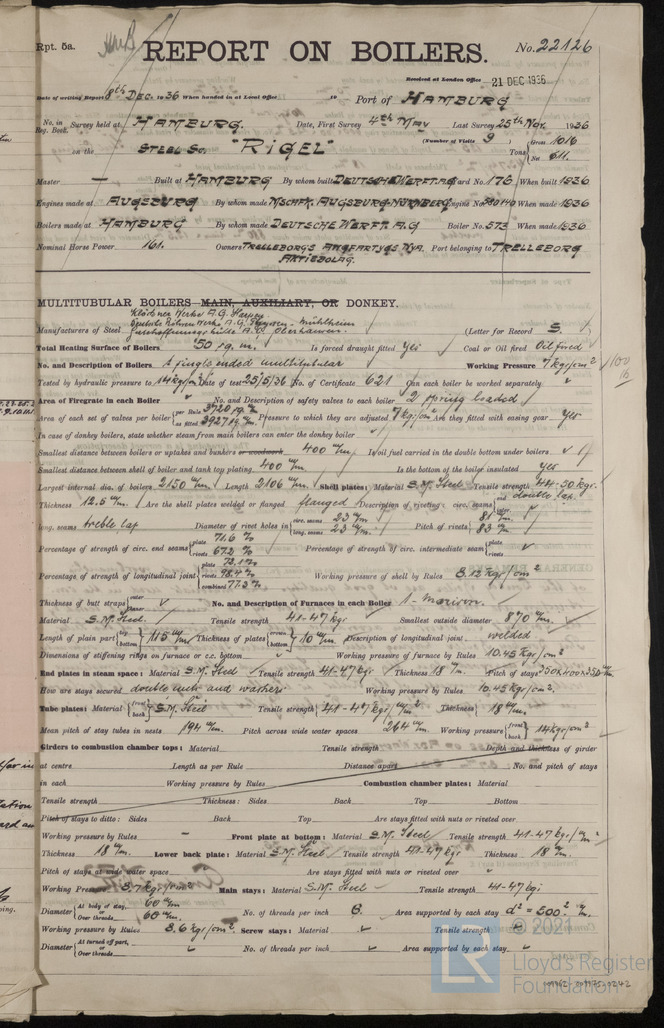 Rpt. 5a.
REPORT ON BOILERS.
No. 22126
Received at London Office 21 DEC 1936
Date of writing Report 8th Dec. 1936 When handed in at Local Office 19 Port of HAMBURG
No. in Reg. Book. Survey held at HAMBURG. Date, First Survey 4th May Last Survey 25th Nov. 1936
(Number of Visits 9)
on the STEEL Sc. "RIGEL" Tons Gross 1016 Net 611.
Master — Built at HAMBURG By whom built DEUTSCHE WERFT. A.G Yard No. 176 When built 1936
Engines made at AUGSBURG By whom made MSCHFK. AUGSBURG-NÜRNBERG Engine No. When made 1936
Boilers made at HAMBURG By whom made DEUTSCHE WERFT. A.G Boiler No. 573 When made 1936
Nominal Horse Power 161. Owners TRELLEBORGS ANGFARTYGS NYA AKTIEBOLAG. Port belonging to TRELLEBORG
MULTITUBULAR BOILERS MAIN, AUXILIARY, OR DONKEY.
Klöckner Werke A.G.
Deutsche Röhren Werke A.G. Thyssen. Mühlheim
Manufacturers of Steel Gutehoffnungshütte A.G. Oberhausen. (Letter for Record S.
Total Heating Surface of Boilers 50 sq. m. Is forced draught fitted yes Coal or Oil fired Oil fired
No. and Description of Boilers 1 single ended multitubular Working Pressure 7 kgs/cm²
Tested by hydraulic pressure to 14 kgs/cm² Date of test 25/5/36 No. of Certificate 621 Can each boiler be worked separately
Area of Firegrate in each Boiler No. and Description of safety valves to each boiler 2 spring loaded
Area of each set of valves per boiler per Rule 3720 as fitted 3927 Pressure to which they are adjusted 7 kgs/cm² Are they fitted with easing gear yes
In case of donkey boilers, state whether steam from main boilers can enter the donkey boiler
Smallest distance between boilers or uptakes and bunkers or woodwork 400 m/m Is oil fuel carried in the double bottom under boilers
Smallest distance between shell of boiler and tank top plating 400 m/m Is the bottom of the boiler insulated yes
Largest internal dia. of boilers 2150 m/m Length 2106 m/m. Shell plates: Material S.M. Steel Tensile strength 44-50 kgs.
Thickness 12.5 m/m. Are the shell plates welded or flanged flanged Description of riveting: circ. seams double lap.
long. seams treble lap Diameter of rivet holes in circ. seams 23 m/m long. seams 23 m/m Pitch of rivets 81 m/m 83 m/m
Percentage of strength of circ. end seams plate 71.6 % rivets 67.2 % Percentage of strength of circ. intermediate seam plate rivets
Percentage of strength of longitudinal joint plate rivets combined 77.3 % Working pressure of shell by Rules 8.12 kgs/cm²
Thickness of butt straps outer inner No. and Description of Furnaces in each Boiler 1- Morison.
Material S.M. Steel. Tensile strength 41-47 kgs Smallest outside diameter 870 m/m.
Length of plain part top bottom 115 m/m Thickness of plates crown bottom 10 m/m Description of longitudinal joint welded
Dimensions of stiffening rings on furnace or c.c. bottom Working pressure of furnace by Rules 10.45 kgs/cm²
End plates in steam space: Material S.M. Steel Tensile strength 41-47 kgs Thickness 18 m/m. Pitch of stays
How are stays secured double nuts and washers Working pressure by Rules 10.45 kgs/cm².
Tube plates: Material front back S.M. Steel Tensile strength 41-47 kgs/m/m² Thickness 18 m/m.
Mean pitch of stay tubes in nests 194 m/m. Pitch across wide water spaces 264 m/m. Working pressure front back 14 kgs/cm²
Girders to combustion chamber tops: Material Tensile strength Depth and thickness of girder
at centre Length as per Rule Distance apart No. and pitch of stays
in each Working pressure by Rules Combustion chamber plates: Material
Tensile strength Thickness: Sides Back Top Bottom
Pitch of stays to ditto: Sides Back Top Are stays fitted with nuts or riveted over
Working pressure by Rules — Front plate at bottom: Material S.M. Steel Tensile strength 41-47 kgs/m
Thickness 18 m/m. Lower back plate: Material S.M. Steel Tensile strength 41-47 kgs Thickness 18 m/m.
Pitch of stays at wide water space Are stays fitted with nuts or riveted over
Working Pressure 8.7 kgs/cm² Main stays: Material S.M. Steel Tensile strength 41-47 kgs
Diameter At body of stay, or Over threads 60 m/m 60 m/m. No. of threads per inch 6. Area supported by each stay d² = 500² m/m.
Working pressure by Rules 8.6 kgs/cm². Screw stays: Material Tensile strength
Diameter At turned off part, or Over threads No. of threads per inch Area supported by each stay
© 2021
LR Lloyd's Register Foundation